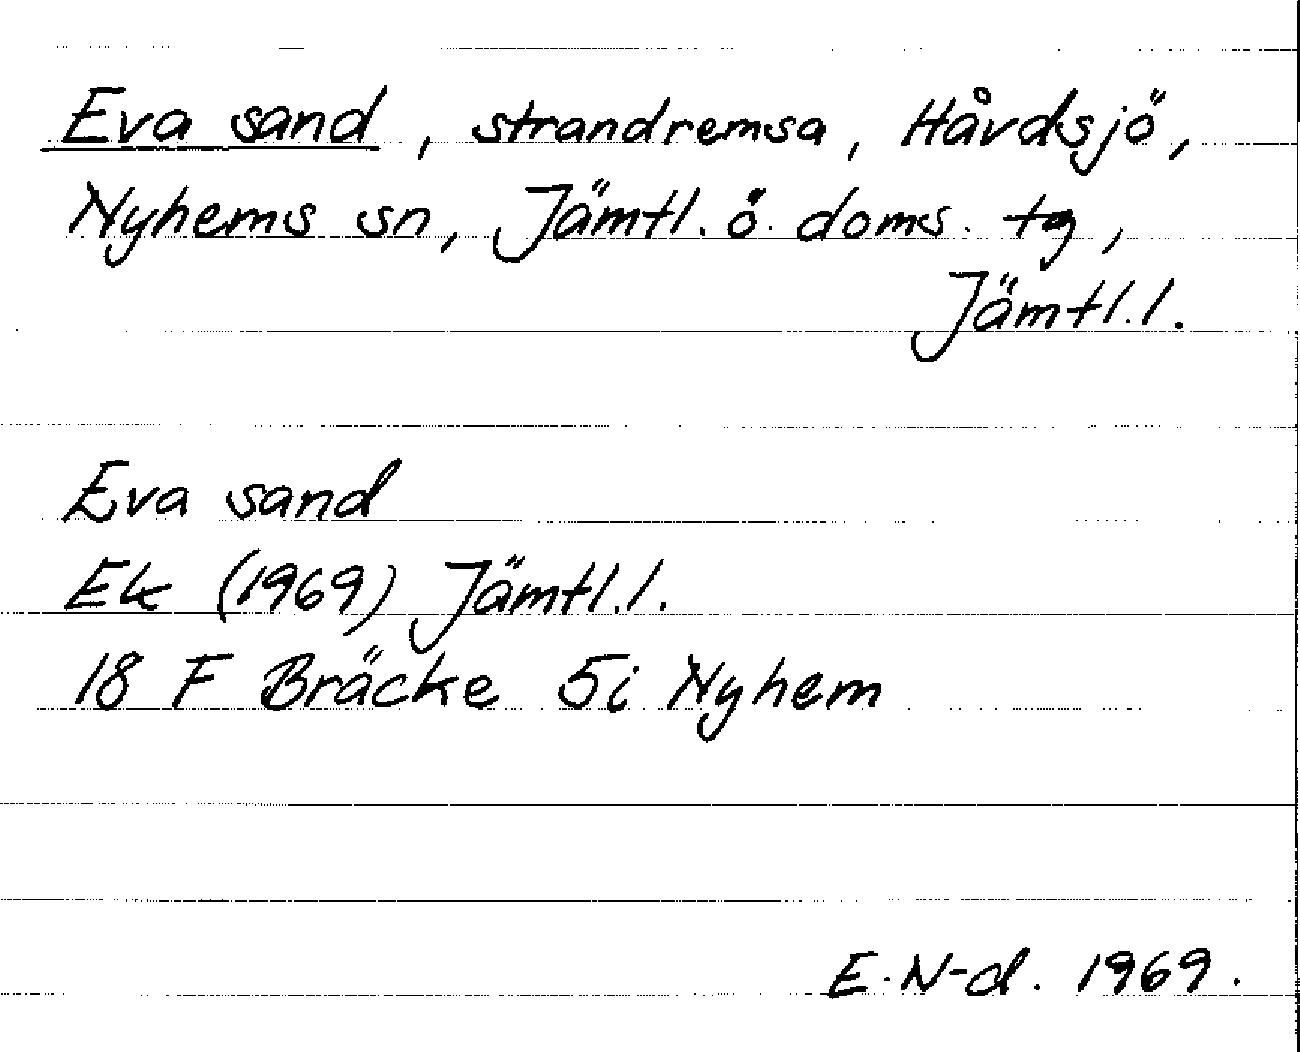 Eva sand, strandremsa, Håvdsjö,
Nyhems sn, Jämtl. ö. doms. tg,
Jämtl.l.
Eva sand
Ek (1969) Jämtl.l.
18 F Bräcke 5i Nyhem
E.N-d. 1969.